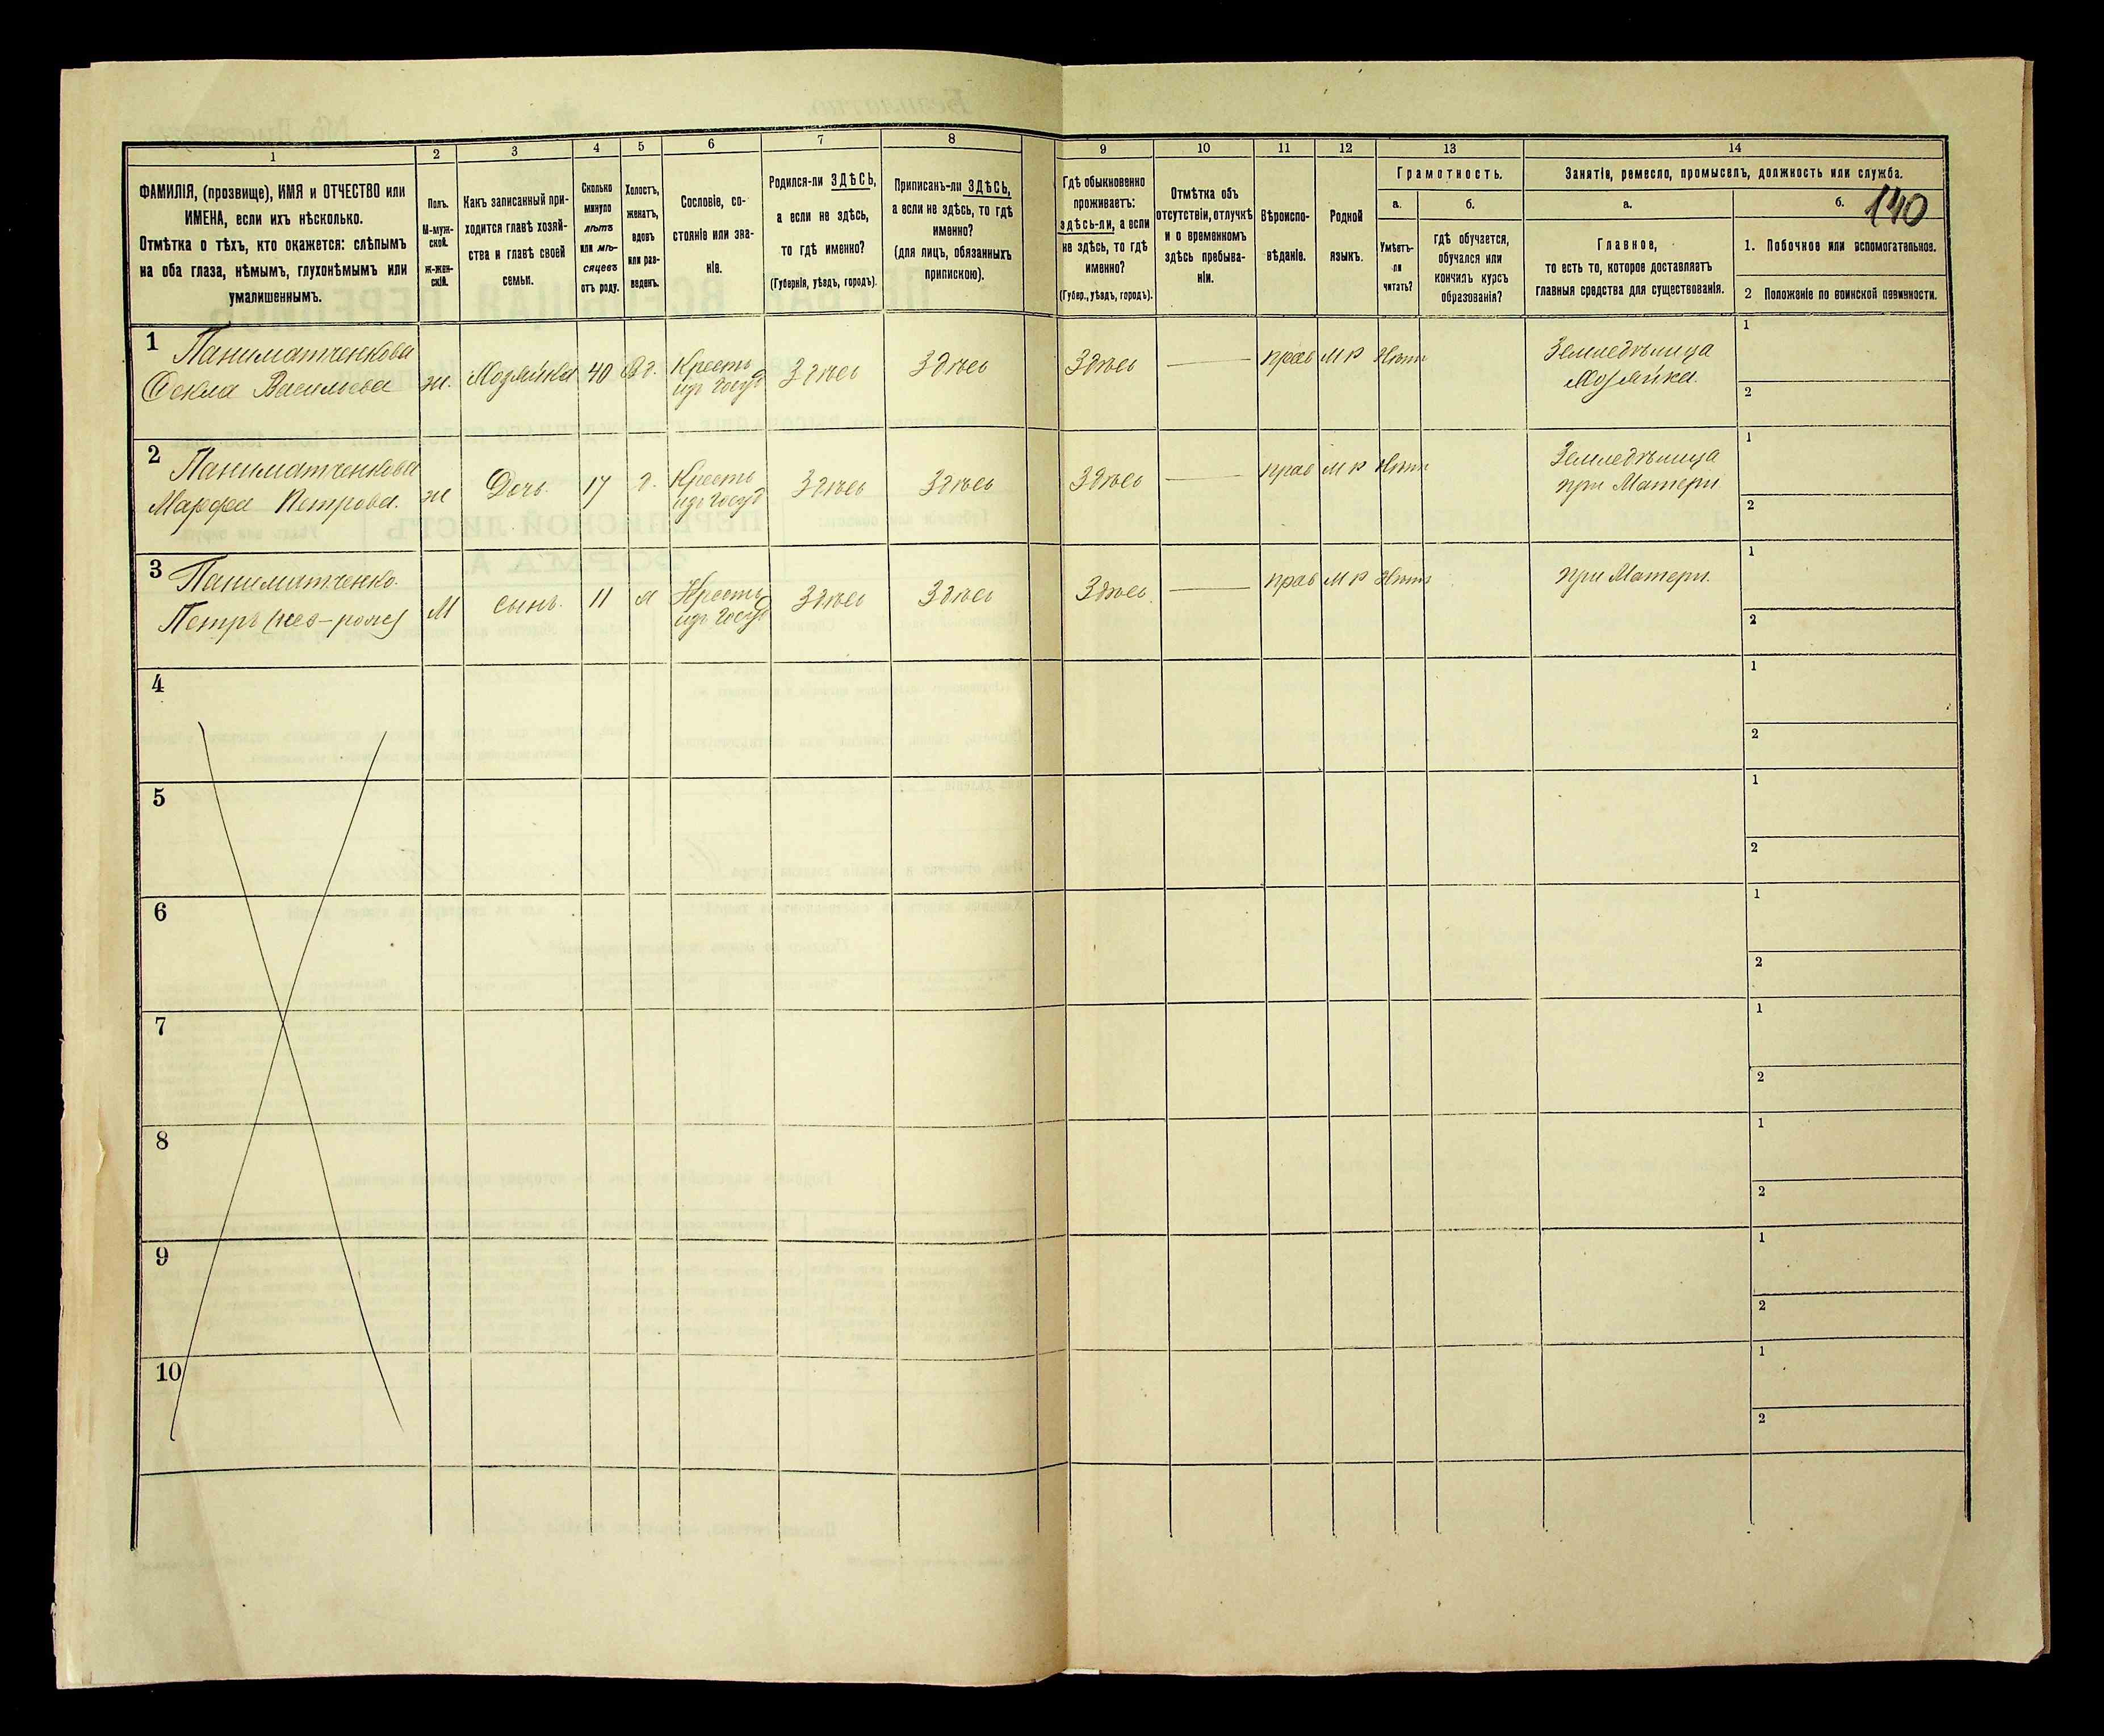 1 2 3 4 5 6 7 8 9 10 11 12 13 14
ФАМИЛІЯ, (прозвище), ИМЯ и ОТЧЕСТВО или
ИМЕНА, если ихъ нѣсколько.
Отмѣтка о тѣхъ, кто окажется: слѣпымъ
на оба глаза, нѣмымъ, глухонѣмымъ или
умалишеннымъ.
Полъ.
М-муж-
ской.
ж-жен-
скій.
Какъ записанный при-
ходится главѣ хозяй-
ства и главѣ своей
семьи.
Сколько
минуло
лѣтъ
или мѣ-
сяцевъ
отъ роду.
Холостъ,
женатъ,
вдовъ
или раз-
веденъ.
Сословіе, со-
стояніе или зва-
ніе.
Родился-ли ЗДѢСЬ,
а если не здѣсь,
то гдѣ именно?
(Губернія, уѣздъ, городъ).
Приписанъ-ли ЗДѢСЬ,
а если не здѣсь, то гдѣ
именно?
(для лицъ, обязанныхъ
припискою).
Гдѣ обыкновенно
проживаетъ:
здѣсь-ли, а если
не здѣсь, то гдѣ
именно?
(Губер., уѣздъ, городъ).
Отмѣтка объ
отсутствіи, отлучкѣ
и о временномъ
здѣсь пребыва-
ніи.
Вѣроиспо-
вѣданіе.
Родной
языкъ.
Грамотность.
а.
Умѣетъ-
ли
читать?
б.
гдѣ обучается,
обучался или
кончилъ курсъ
образованія?
Занятіе, ремесло, промыселъ, должность или служба.
а.
Главное,
то есть то, которое доставляетъ
главныя средства для существованія.
б.
140
1. Побочное или вспомогательное.
2 Положеніе по воинской повинности.
1 Паниматченкова
Ѳекла Васильева
ж.
Хозяйка
40
Вд.
Крестьян
изъ госуд
Здѣсь
Здѣсь
Здѣсь
прав
М р
Нѣтъ
Земледѣлица
Хозяйка.
1
2
2 Паниматченкова
Марфа Петрова.
ж
Дочь.
17
д.
Крестьян
изъ госуд
Здѣсь
Здѣсь
Здѣсь
прав
М р
Нѣтъ
Земледѣлица
при Матери
1
2
3 Паниматченко.
Петръ
М
сынъ.
11
х
Крестьян
изъ госуд
Здѣсь
Здѣсь
Здѣсь
прав
М р
Нѣтъ
при Матери.
1
2
4
1
2
5
1
2
6
1
2
7
1
2
8
1
2
9
1
2
10
1
2